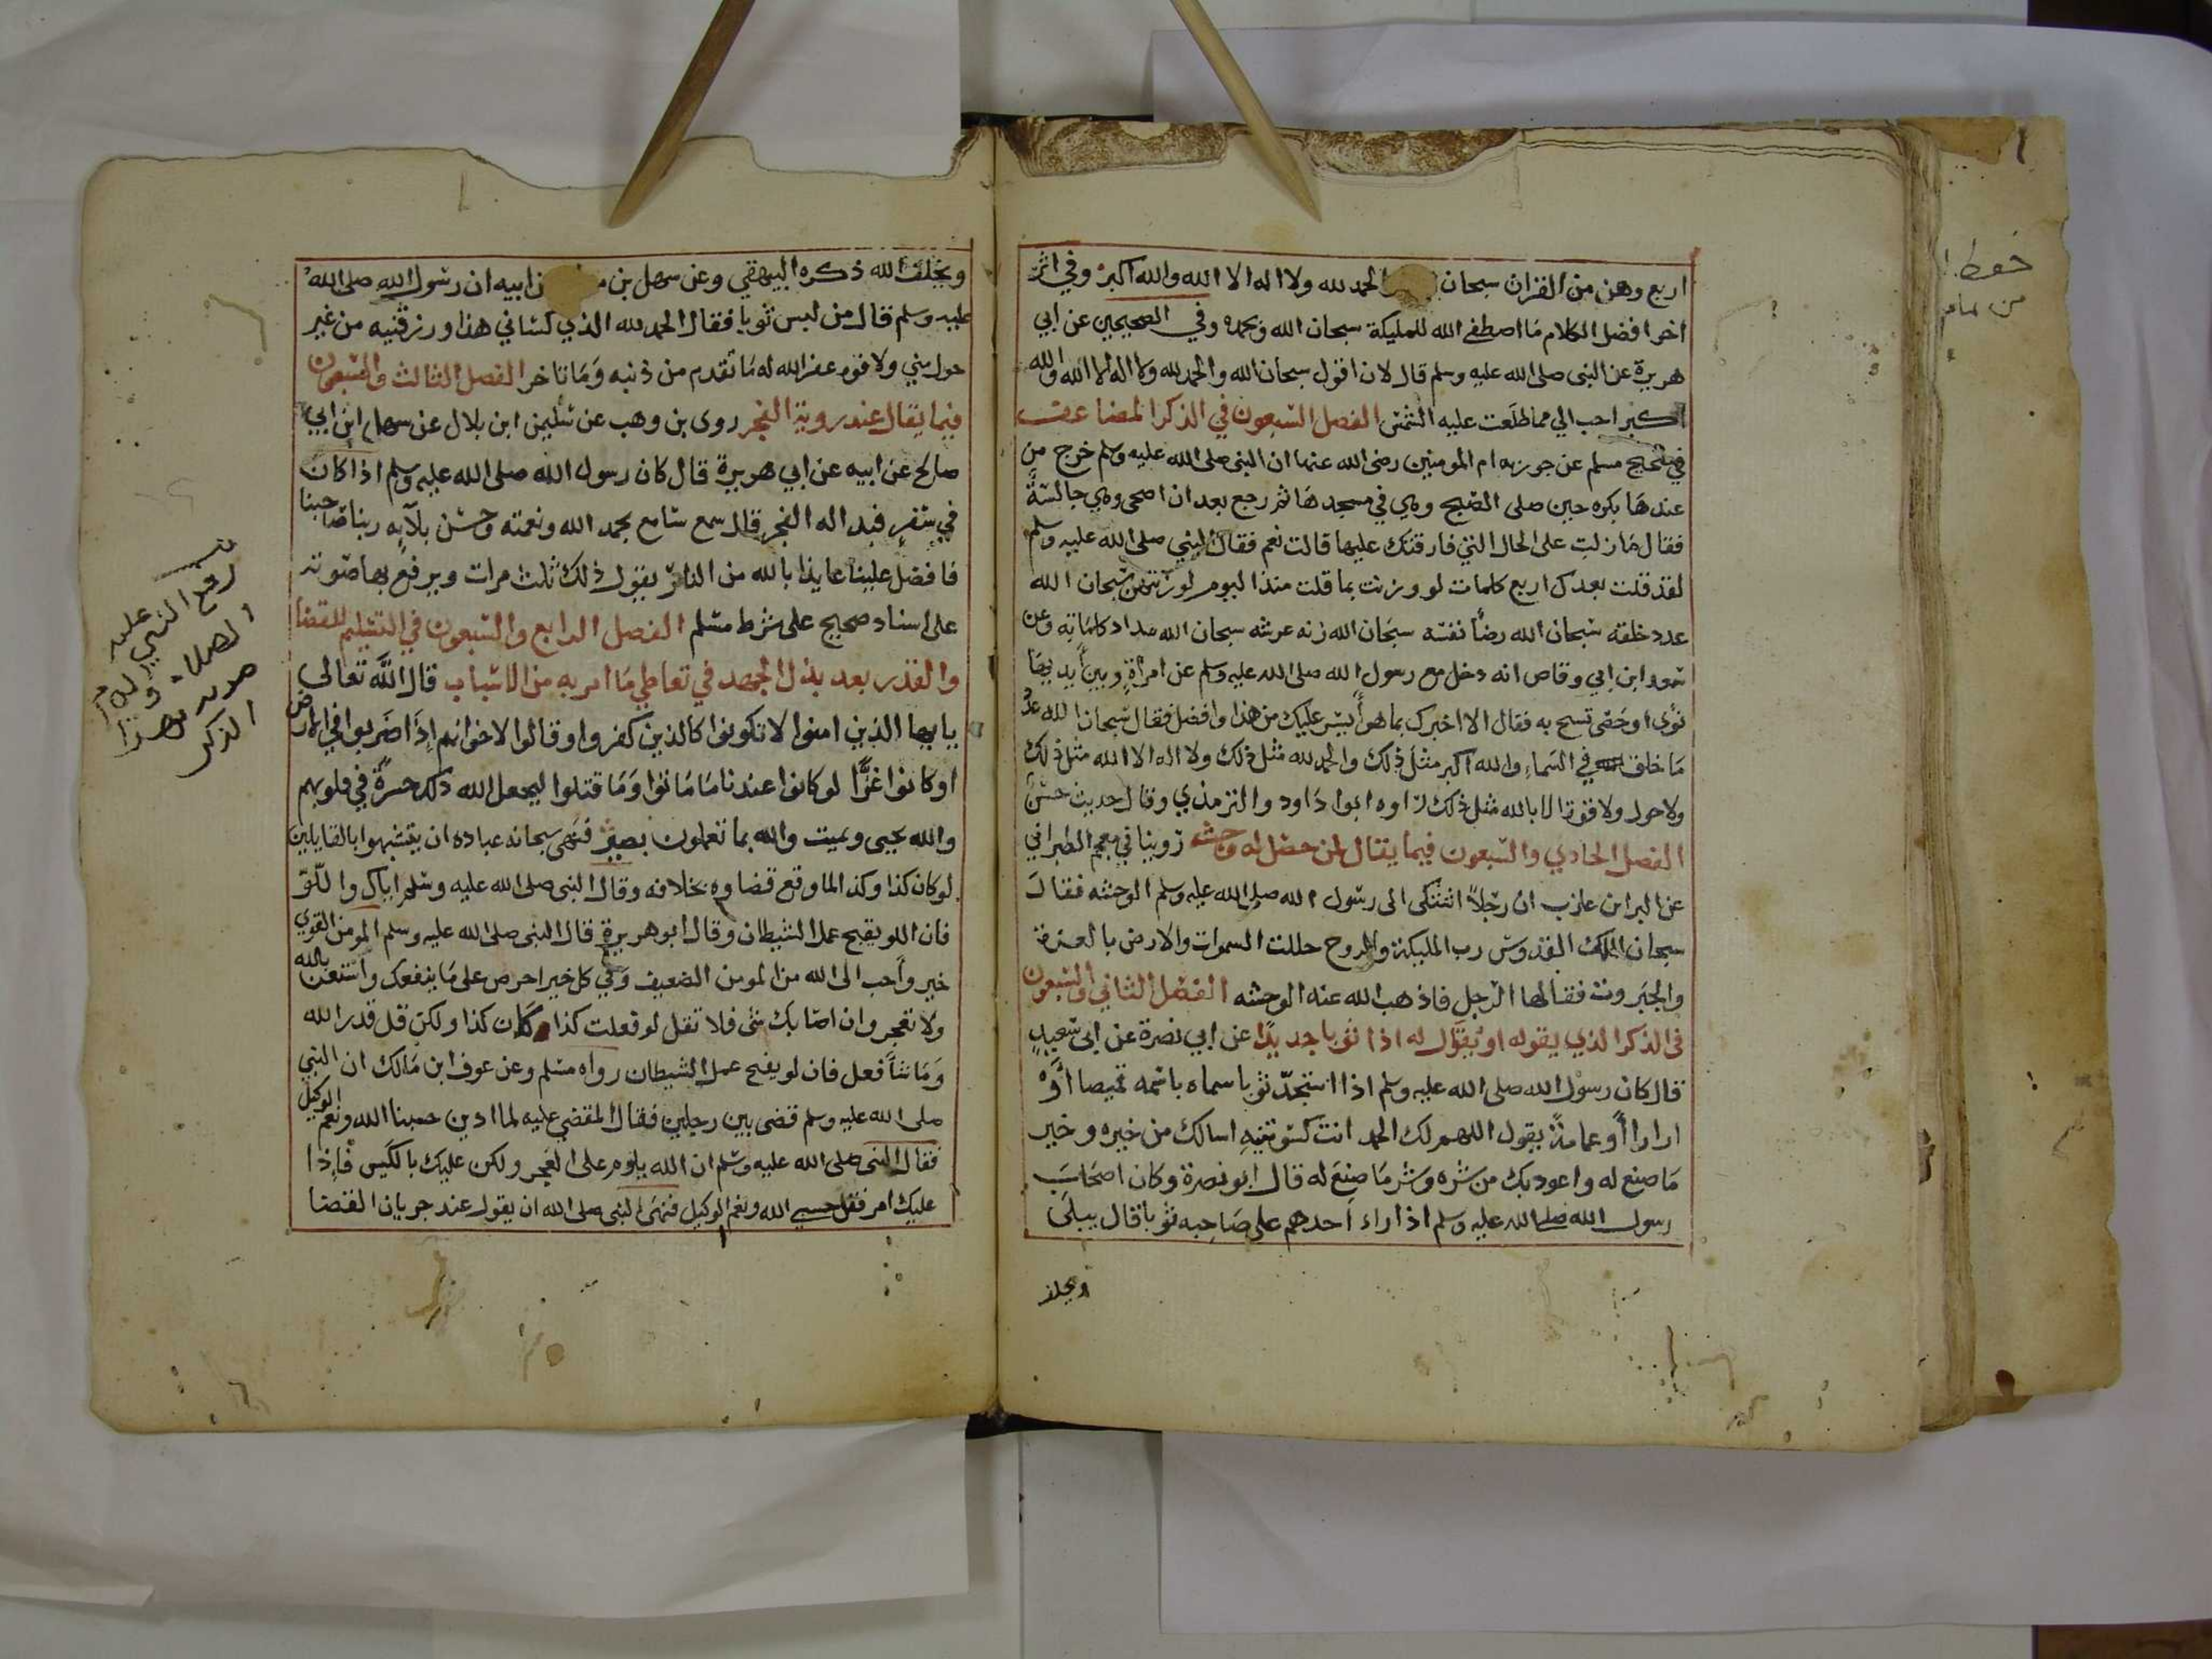 اربع وهن من القران سبحان الحمد لله ولا اله الا الله والله اكبر وفي اثر
اخر افضل الكلام ما اصطفى الله للمليكة سبحان الله وبحمده وفي الصحيحين عن ابي
هريرة عن النبى صلى الله عليه وسلم قال لان اقول سبحان الله والحمد لله ولا اله الا الله والله
اكبر احب الي مما طلعت عليه الشمس الفصل السبعون في الذكر المضاعف
في صحيح مسلم عن جويريه ام المومنين رضى الله عنها ان النبى صلى الله عليه وسلم خرج من
عندها بكره حين صلى الصبح وهي في مسجدها ثم رجع بعد ان اضحى وهي جالسة
فقال ما زلت على الحال التي فارقتك عليها قالت نعم فقال النبي صلى الله عليه وسلم
لقد قلت بعدك اربع كلمات لو وزنت بما قلت منذ اليوم لوزنتهن سبحان الله
عدد خلقه سبحان الله رضا نفسه سبحان الله زنه عرشه سبحان الله مداد كلماته وعن
سعد ابن ابي وقاص انه دخل مع رسول الله صلى الله عليه وسلم عن امراة وبين يديها
نوى او حصى تسبح به فقال الا اخبرك بما هو ايسر عليك من هذا وافضل فقال سبحان الله عدد
ما خلق في السماء والله اكبر مثل ذلك والحمد لله مثل ذلك ولا اله الا الله مثل ذلك
ولا حول ولا قوة الا بالله مثل ذلك رواه ابوا داود والترمذي وقال حديث حسن
الفصل الحادي والسبعون فيما يقال لمن حصل له وحشه روينا في معجم الطبراني
عن البرا بن عازب ان رجلا اشتكى الى رسول الله صلى الله عليه وسلم الوحشه فقال
سبحان الملك القدوس رب المليكة والروح جللت السموات والارض بالعزة
والجبروت فقالها الرجل فاذهب الله عنه الوحشه الفصل الثاني والسبعون
فى الذكر الذي يقوله او يقال له اذا ثوبا جديدا عن ابي نضرة عن ابى سعيد
قال كان رسول الله صلى الله عليه وسلم اذا استجد ثوبا سماه باسمه قميصا او
ازارا او عمامة يقول اللهم لك الحمد انت كسوتنيه اسالك من خيره وخير
ما صنع له واعوذ بك من شره وشر ما صنع له قال ابو نضرة وكان اصحاب
رسول الله صلى الله عليه وسلم اذا راء احدهم على صاحبه ثوبا قال يبلى
ويخلف
ويخلف الله ذكره البيهقي وعن سهل بن ابيه ان رسول الله صلى الله
عليه وسلم قال من لبس ثوبا فقال الحمد لله الذي كساني هذا ورزقنيه من غير
حول مني ولا قوه غفر الله له ما تقدم من ذنبه وما تاخر الفصل الثالث والسبعون
فيما يقال عند روية الفجر روى بن وهب عن سليمن ابن بلال عن سهل ابن ابي
صالح عن ابيه عن ابي هريرة قال كان رسول الله صلى الله عليه وسلم اذا كان
في سفر فبدا له الفجر قال سمع سامع بحمد الله ونعمته وحسن بلآيه ربنا صاحبنا
فافضل علينا عايذا بالله من النار يقول ذلك ثلث مرات ويرفع بها صوته
على اسناد صحيح على شرط مسلم الفصل الرابع والسبعون في التسليم للقضا
والقدر بعد بذل الجهد في تعاطي ما امر به من الاسباب قال الله تعالى
يايها الذين امنوا لا تكونوا كالذين كفروا وقالوا لاخوانهم اذا ضربوا في الارض
او كانوا غزا لو كانوا عندنا ما ماتوا وما قتلوا ليجعل الله ذلك حسرة في قلوبهم
والله يحيى ويميت والله بما تعملون بصير فنهى سبحانه عباده ان يتشبهوا بالقايلين
لو كان كذا وكذا لما وقع قضاوه بخلافه وقال النبى صلى الله عليه وسلم اياك واللو
فان اللو يفتح عمل الشيطان وقال ابو هريرة قال النبى صلى الله عليه وسلم المومن القوي
خير واحب الى الله من المومن الضعيف وفي كل خير احرص على ما ينفعك واستعن بالله
ولا تعجز وان اصابك شى فلا تقل لو فعلت كذا كان كذا ولكن قل قدر الله
وما شا فعل فان لو يفتح عمل الشيطان رواه مسلم وعن عوف ابن مالك ان النبي
صلى الله عليه وسلم قضى بين رجلين فقال المقضي عليه لما ادبر حسبنا الله ونعم الوكيل
فقال النبى صلى الله عليه وسلم ان الله يلوم على العجز ولكن عليك بالكيس فاذا
عليك امر فقل حسبي الله ونعم الوكيل فنهى النبى صلى الله ان يقول عند جريان القضا